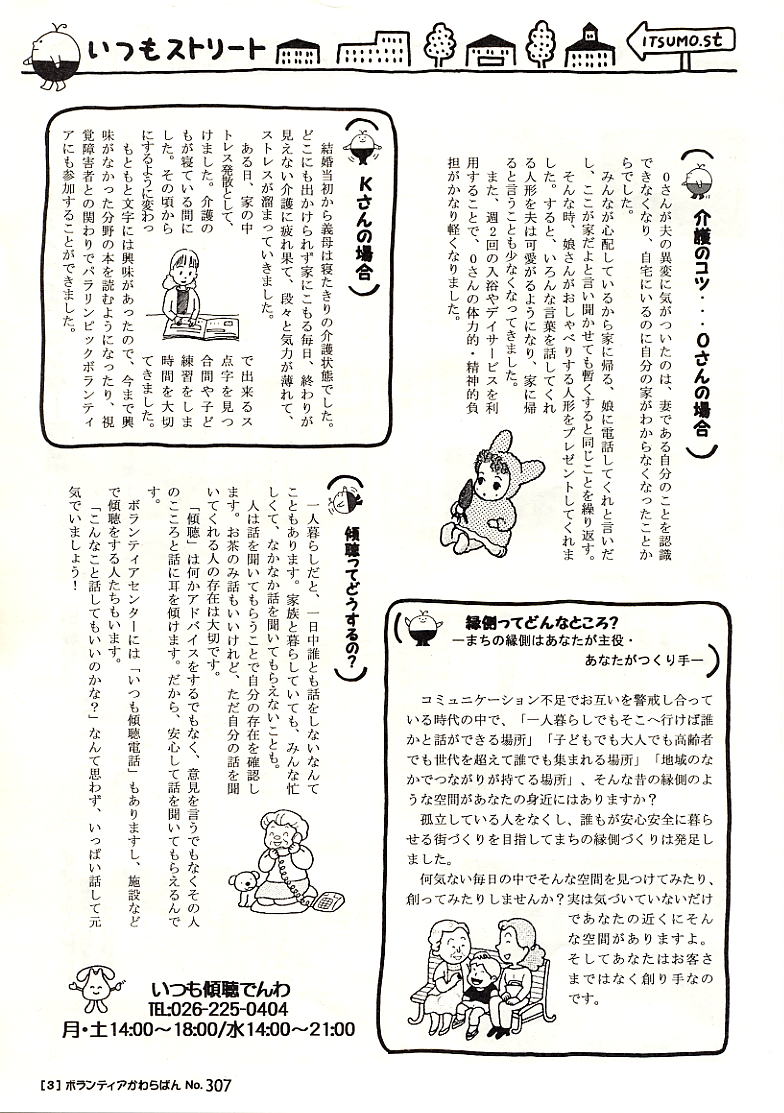 いつもストリート
ITSUMO.St
介護のコツ・・・Oさんの場合
Oさんが夫の異変に気がついたのは、妻である自分のことを認識
できなくなり、自宅にいるのに自分の家がわからなくなったことか
らでした。
みんなが心配しているから家に帰る、娘に電話してくれと言いだ
し、ここが家だよと言い聞かせても暫くすると同じことを繰り返す。
そんな時、娘さんがおしゃべりする人形をプレゼントしてくれま
した。すると、いろんな言葉を話してくれ
る人形を夫は可愛がるようになり、家に帰
ると言うことも少なくなってきました。
また、週2回の入浴やデイサービスを利
用することで、Oさんの体力的・精神的負
担がかなり軽くなりました。
Kさんの場合
結婚当初から義母は寝たきりの介護状態でした。
どこにも出かけられず家にこもる毎日、終わりが
見えない介護に疲れ果て、段々と気力が薄れて、
ストレスが溜まっていきました。
ある日、家の中で出来るス
トレス発散として、点字を見つ
けました。介護の合間や子ど
もが寝ている間に練習をしま
した。その頃から時間を大切
にするように変わってきました。
もともと文字には興味があったので、今まで興
味がなかった分野の本を読むようになったり、視
覚障害者との関わりでパラリンピックボランティ
アにも参加することができました。
傾聴ってどうするの?
一人暮らしだと、一日中誰とも話をしないなんて
こともあります。家族と暮らしていても、みんな忙
しくて、なかなか話を聞いてもらえないことも。
人は話を聞いてもらうことで自分の存在を確認し
ます。お茶のみ話もいいけれど、ただ自分の話を聞
いてくれる人の存在は大切です。
「傾聴」は何かアドバイスをするでもなく、意見を言うでもなくその人
のこころと話に耳を傾けます。だから、安心して話を聞いてもらえるんで
す。
ボランティアセンターには「いつも傾聴電話」もありますし、施設など
で傾聴をする人たちもいます。
「こんなこと話してもいいのかな?」なんて思わず、いっぱい話して元
気でいましょう!
いつも傾聴でんわ
TEL:026-225-0404
月・土14:00〜18:00/水14:00〜21:00
縁側ってどんなところ?
ーまちの縁側はあなたが主役・
あなたがつくり手ー
コミュニケーション不足でお互いを警戒し合って
いる時代の中で、「一人暮らしでもそこへ行けば誰
かと話ができる場所」「子どもでも大人でも高齢者
でも世代を超えて誰でも集まれる場所」「地域のな
かでつながりが持てる場所」、そんな昔の縁側のよ
うな空間があなたの身近にはありますか?
孤立している人をなくし、誰もが安心安全に暮ら
せる街づくりを目指してまちの縁側づくりは発足し
ました。
何気ない毎日の中でそんな空間を見つけてみたり、
創ってみたりしませんか?実は気づいていないだけ
であなたの近くにそん
な空間がありますよ。
そしてあなたはお客さ
まではなく創り手なの
です。
[3] ボランティアかわらばん No.307